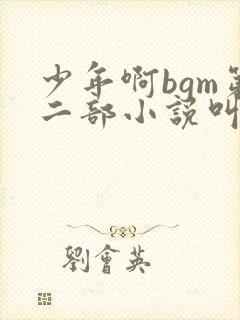 少年啊bgm第
二部小説叫
劉會英